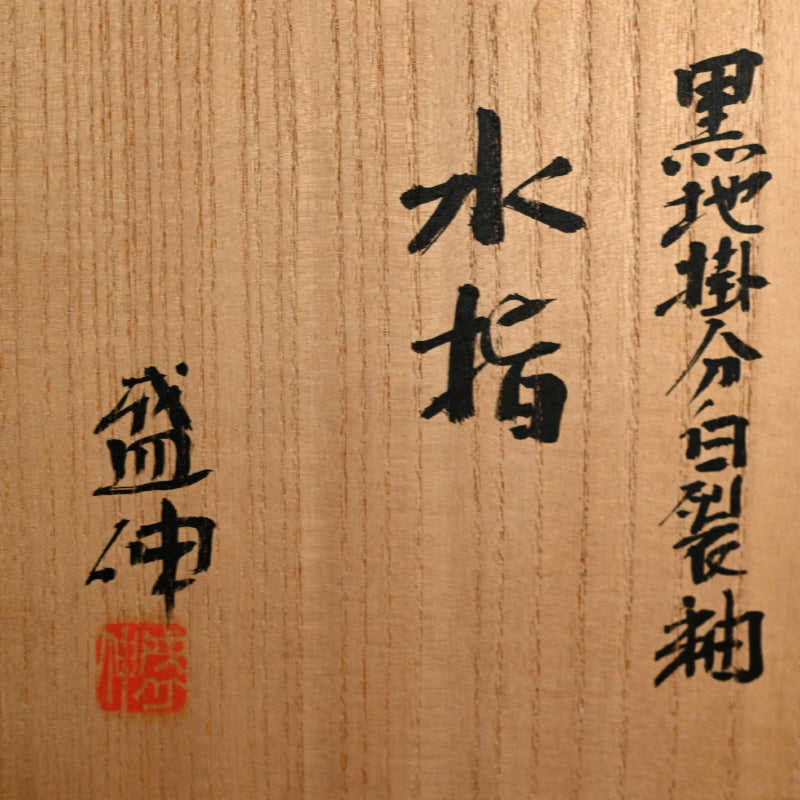 黒地掛分白裂釉
水指
盛伸
盛伸